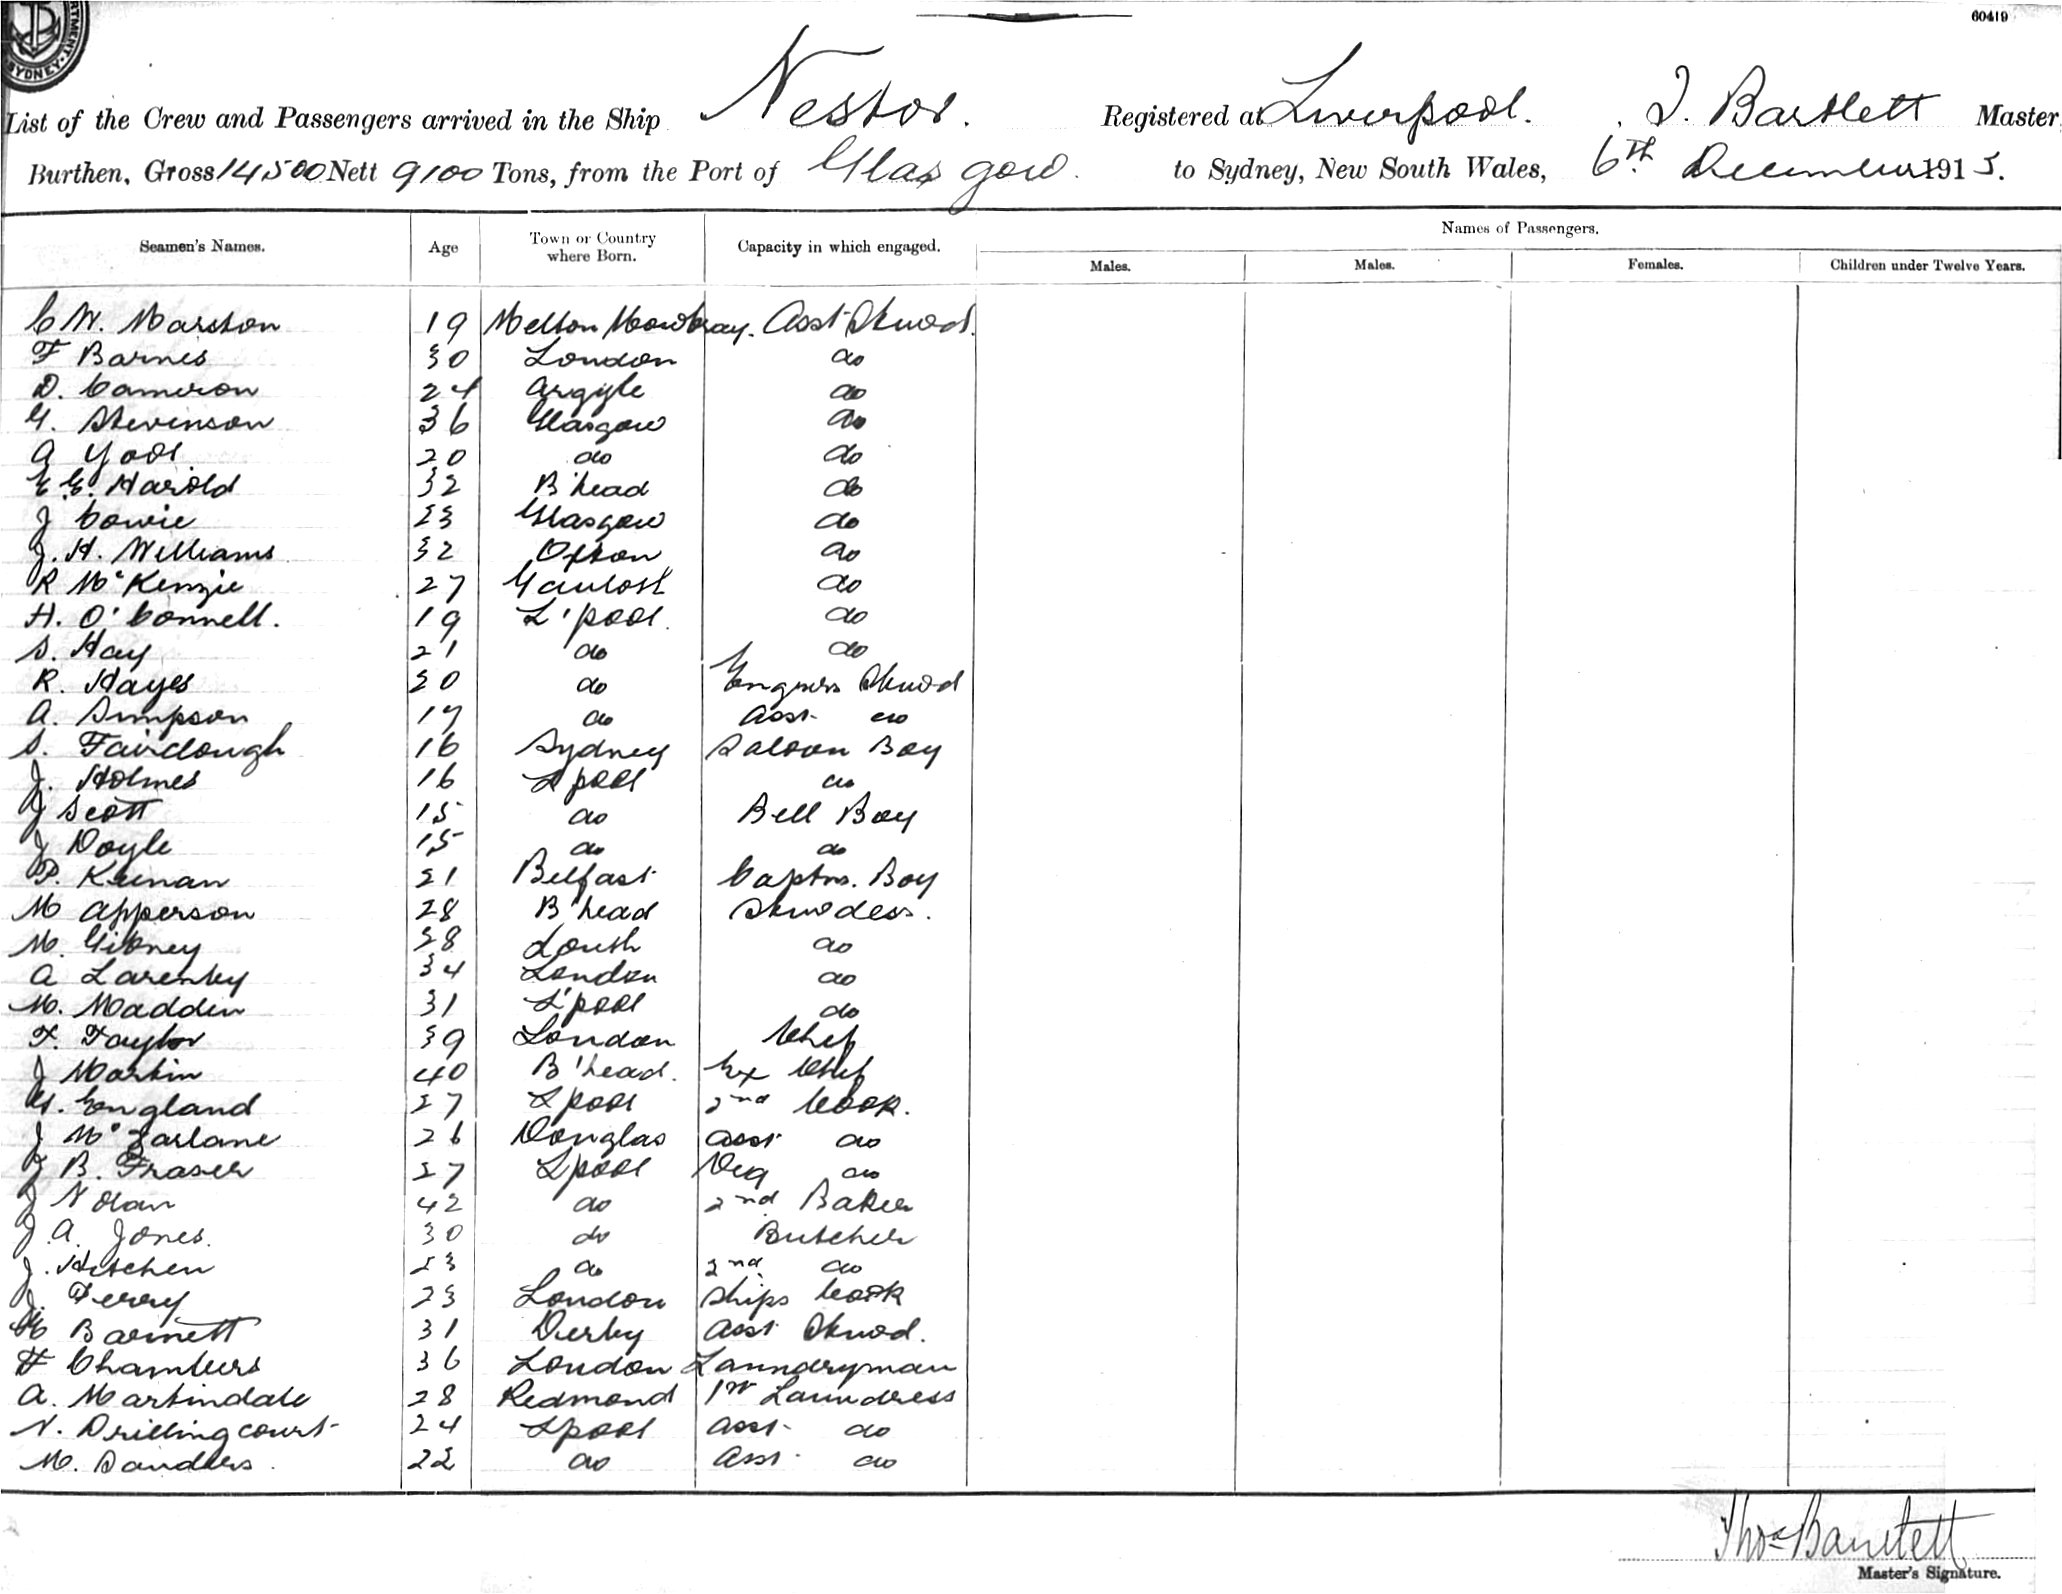 60419
RTMENT. SYDNEY.
List of the Crew and Passengers arrived in the Ship Nestor. Registered at Liverpool. T. Bartlett Master
Burthen, Gross 14500 Nett 9100 Tons, from the Port of Glasgow. to Sydney, New South Wales, 6th December 1915.
Seamen's Names. Age Town or Country where Born. Capacity in which engaged. Names of Passengers.
Males. Males. Females. Children under Twelve Years.
C W. Marston 19 Melton Mowbray. Asst Stwod.
F Barnes 30 London do
D. Cameron 24 Argyle do
G. Stevenson 36 Glasgow do
A Yool 20 do do
E G. Harold 32 B'head do
J Cowie 23 Glasgow do
J. H. Williams 32 Oxton do
R McKenzie 27 do
H. O'Connell. 19 L'pool. do
S. Hay 21 do do
R. Hayes 20 do Engnrs Stwod
A. Simpson 17 do Asst do
S. Fairclough 16 Sydney Saloon Boy
J. Holmes 16 Lpool do
J Scott 15 do Bell Boy
J Doyle 15 do do
P. Keenan 21 Belfast Captns. Boy
M Apperson 28 B'head Stwodess.
M. Gibney 28 Louth do
A Larenby 34 London do
M. Madden 31 L'pool do
F. Taylor 39 London Chef
J Martin 40 B'head. Ex Chef
G. England 27 Lpool 2nd Cook.
J McFarlane 26 Douglas Asst do
J B. Fraser 27 Lpool Veg do
J Nolan 42 do 2nd Baker
J. A. Jones. 30 do Butcher
J. Hitchen 23 do 2nd do
J. Ferry 23 London Ships Cook
Barnett 31 Derby Asst Stwod.
F Chambers 36 London Laundryman
A. Martindale 28 Redmond 1st Laundress
N. Drillingcourt 24 Lpool Asst do
M. Sandlers. 22 do Asst. do
Thos Bartlett
Master's Signature.